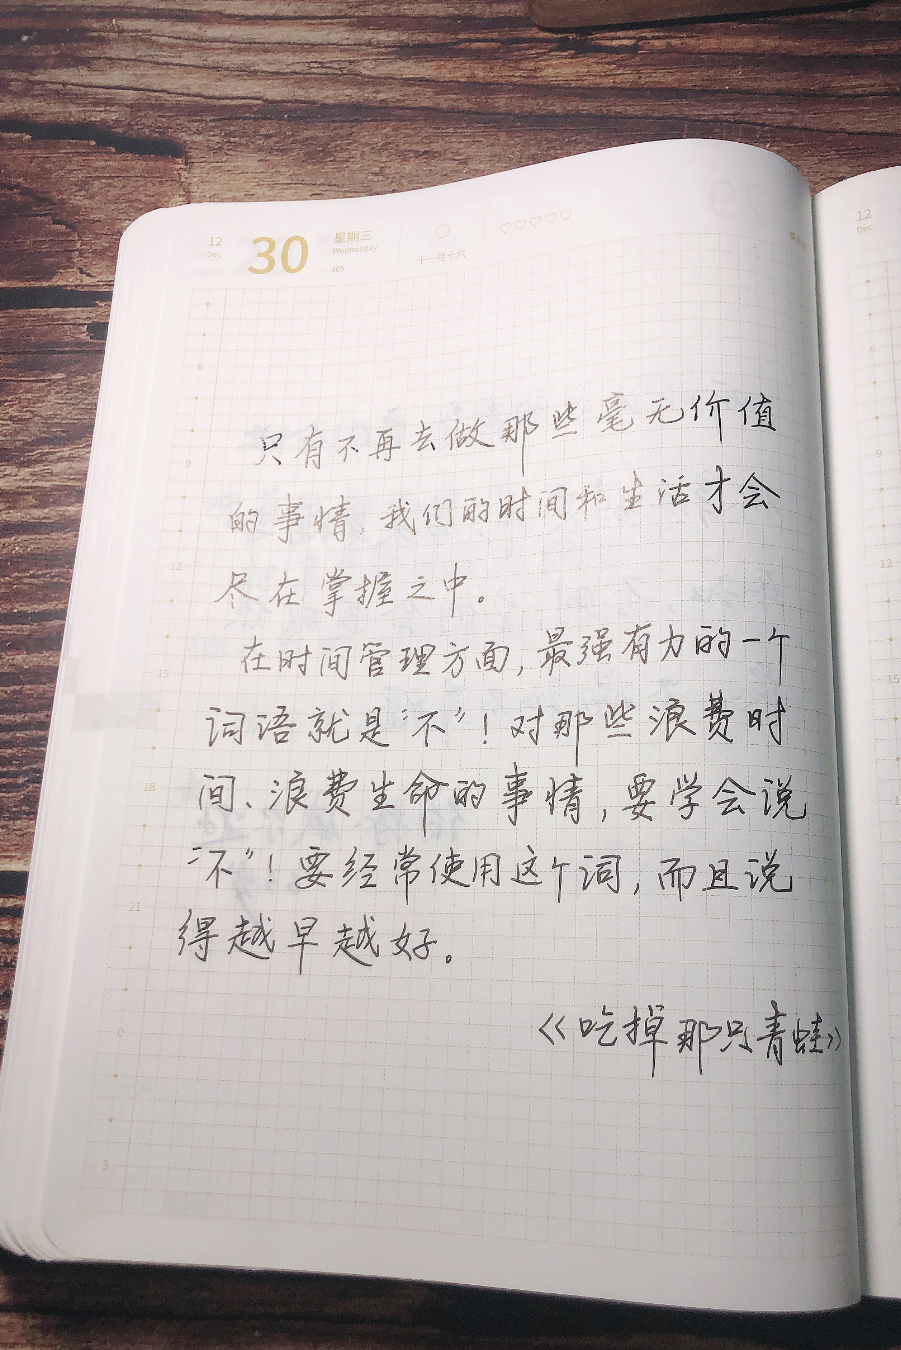 12
Dec
30
星期三
Wednesday
365
十一月十六
12
Dec
6
9
12
15
18
21
0
3
只有不再去做那些毫无价值
的事情,我们的时间和生活才会
尽在掌握之中。
在时间管理方面,最强有力的一个
词语就是“不”!对那些浪费时
间、浪费生命的事情,要学会说
“不”!要经常使用这个词,而且说
得越早越好。
《吃掉那只青蛙》
6
9
12
15